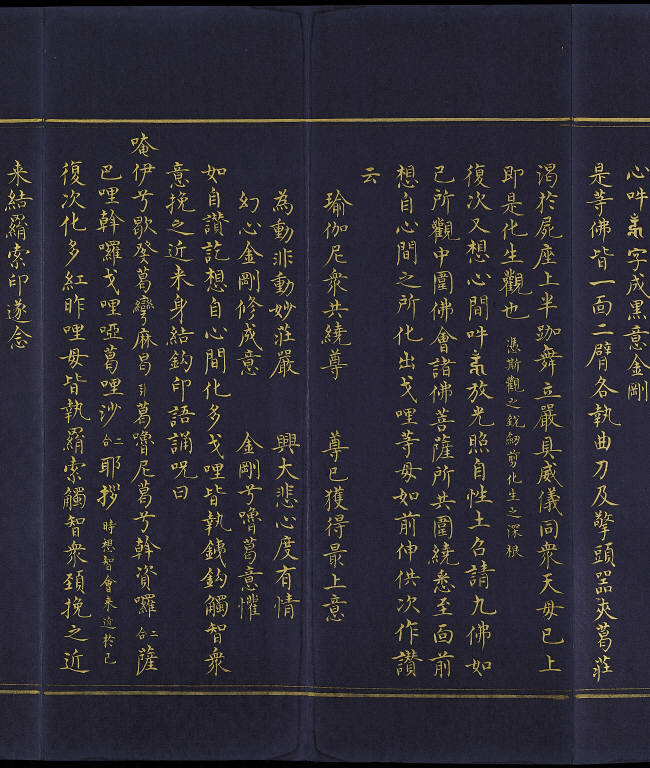 心吽字成黑意金剛
是等佛皆一面二臂各執曲刀及擎頭器夾葛莊
渴於屍座上半跏舞立嚴具威儀同衆天母已上
即是化生觀也 憑斯觀之鋭劒剪化生之深根
復次又想心間吽放光照自性土召請九佛如
已所觀中圍佛會諸佛菩薩所共圍繞悉至面前
想自心間之所化出戈哩等母如前伸供次作讚
云
瑜伽尼衆共繞尊 尊已獲得最上意
為動非動妙莊嚴 興大悲心度有情
幻心金剛修成意 金剛兮嚕葛意懼
如自讚訖想自心間化多戈哩皆執鐵鈎觸智衆
意挽之近来身結鈎印語誦呪曰
唵伊兮歇癹葛彎麻昌 葛嚕尼葛兮斡資囉 二合 薩
巴哩斡囉戈哩啞葛哩沙 二合 耶拶 時想智會来近於己
復次化多紅昨哩母皆執羂索觸智衆頚挽之近
来結羂索印遂念